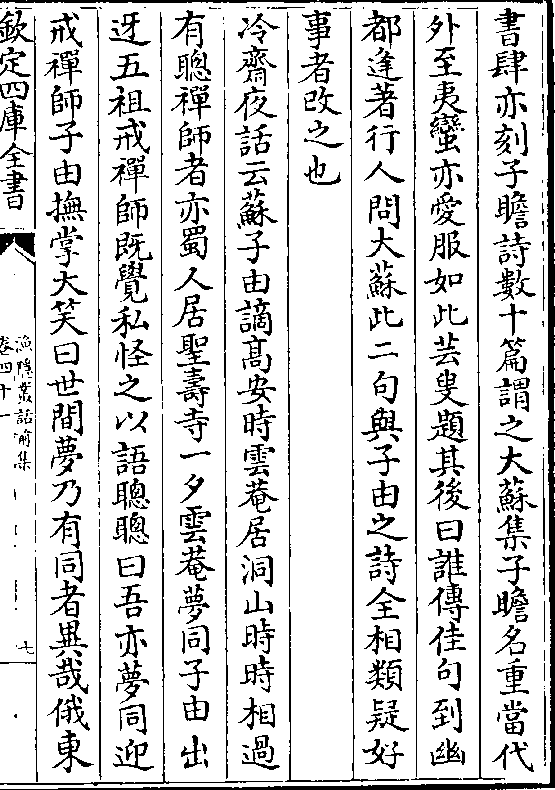 書肆亦刻子瞻詩數十篇謂之大蘇集子瞻名重當代
外至夷蠻亦愛服如此芸叟題其後曰誰傳佳句到幽
都逢著行人問大蘇此二句與子由之詩全相類疑好
事者改之也
冷齋夜話云蘇子由謫髙安時雲菴居洞山時時相過
有聰禪師者亦蜀人居聖壽寺一夕雲菴夢同子由出
迓五祖戒禪師既覺私怪之以語聰聰曰吾亦夢同迎
戒禪師子由撫掌大笑曰世間夢乃有同者異哉俄東
欽定四庫全書
漁隱叢話前集
卷四十一
七